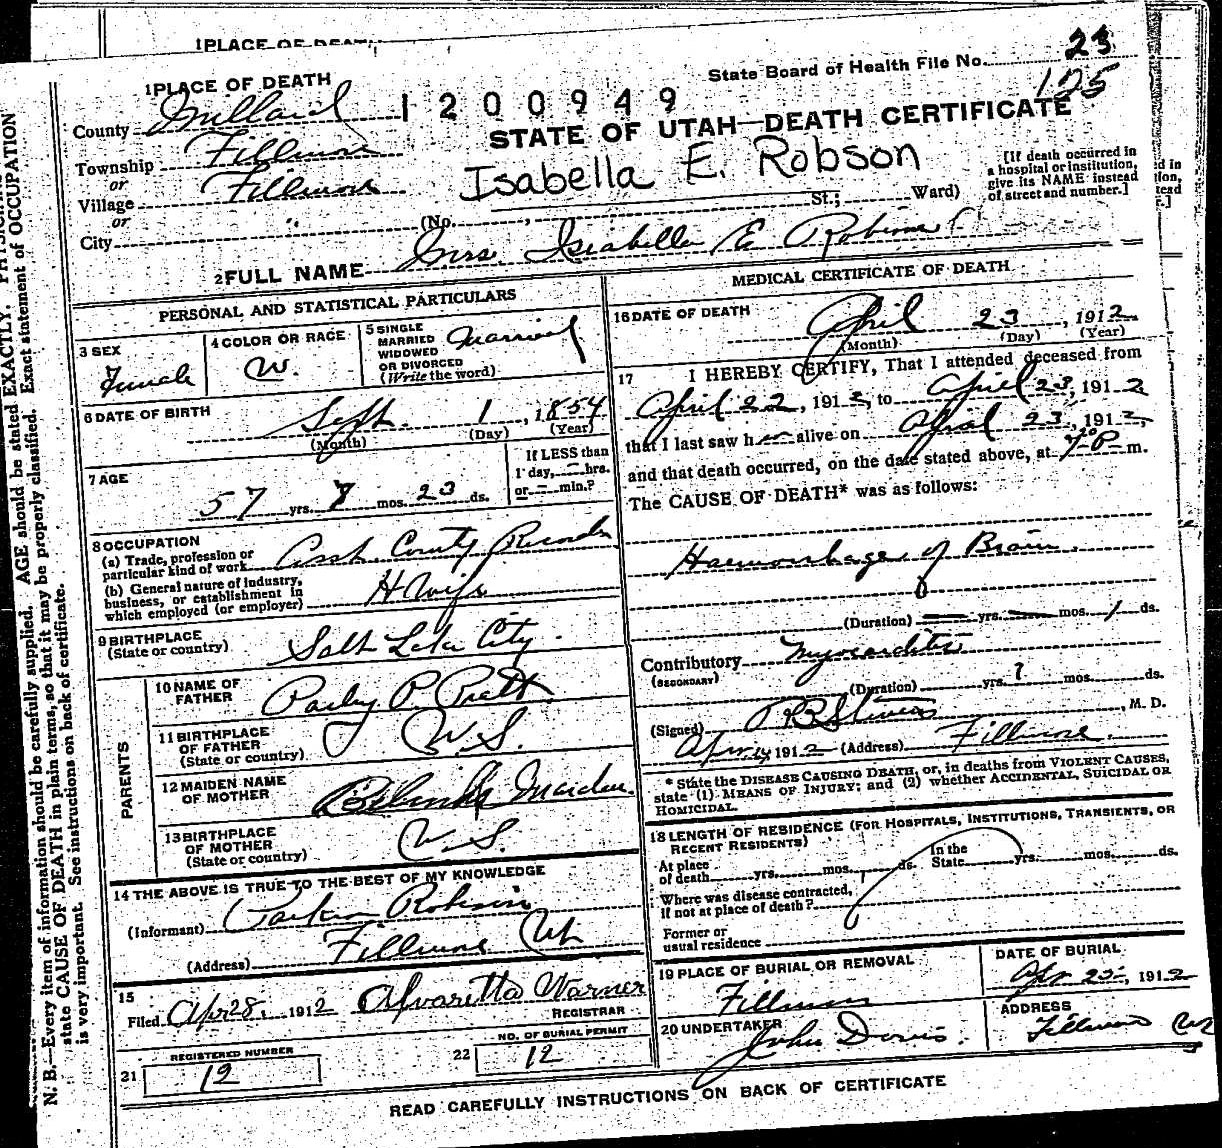 1 PLACE OF DEATH
State Board of Health File No. 23
1 PLACE OF DEATH
125
County Millard
1200949
STATE OF UTAH—DEATH CERTIFICATE
Township Fillmore
Isabella E. Robson
[If death occurred in a hospital or institution, give its NAME instead of street and number.]
or
Village Fillmore
or
City " (No. , St.; Ward)
2 FULL NAME Mrs. Isabella E Robinson
PERSONAL AND STATISTICAL PARTICULARS
3 SEX
Female
4 COLOR OR RACE
W.
5 SINGLE
MARRIED
WIDOWED
OR DIVORCED
(Write the word)
Married
6 DATE OF BIRTH
Sept. 1, 1854
(Month) (Day) (Year)
7 AGE
57 yrs. 7 mos. 23 ds.
If LESS than
1 day, — hrs.
or — min.?
8 OCCUPATION
(a) Trade, profession or
particular kind of work Asst. County Recorder
(b) General nature of industry,
business, or establishment in
which employed (or employer) H Wife
9 BIRTHPLACE
(State or country) Salt Lake City.
PARENTS
10 NAME OF
FATHER Parley P. Pratt
11 BIRTHPLACE
OF FATHER
(State or country) U.S.
12 MAIDEN NAME
OF MOTHER Belinda Marden
13 BIRTHPLACE
OF MOTHER
(State or country) U.S.
14 THE ABOVE IS TRUE TO THE BEST OF MY KNOWLEDGE
(Informant) Parker Robison
(Address) Fillmore Ut
15
Filed Apr 28, 1912 Alvaretta Warner
REGISTRAR
21 REGISTERED NUMBER
12
22 NO. OF BURIAL PERMIT
12
MEDICAL CERTIFICATE OF DEATH
16 DATE OF DEATH
April 23, 1912
(Month) (Day) (Year)
17 I HEREBY CERTIFY, That I attended deceased from
April 22, 1912, to April 23, 1912
that I last saw her alive on April 23, 1912,
and that death occurred, on the date stated above, at 7 P m.
The CAUSE OF DEATH* was as follows:
Haemorrhage of Brain.
(Duration) — yrs. — mos. 1 ds.
Contributory Myocarditis
(SECONDARY)
(Duration) yrs. ? mos. ds.
(Signed) Stevens, M. D.
Apr. 1912 (Address) Fillmore.
* State the DISEASE CAUSING DEATH, or, in deaths from VIOLENT CAUSES,
state (1) MEANS OF INJURY; and (2) whether ACCIDENTAL, SUICIDAL OR
HOMICIDAL.
18 LENGTH OF RESIDENCE (FOR HOSPITALS, INSTITUTIONS, TRANSIENTS, OR
RECENT RESIDENTS)
At place
of death yrs. mos. ds. In the
State yrs. mos. ds.
Where was disease contracted,
if not at place of death?
Former or
usual residence
19 PLACE OF BURIAL OR REMOVAL
Fillmore
DATE OF BURIAL
Apr 25, 1912
20 UNDERTAKER
John Davis.
ADDRESS
Fillmore Ut
READ CAREFULLY INSTRUCTIONS ON BACK OF CERTIFICATE
N. B.—Every item of information should be carefully supplied. AGE should be stated EXACTLY. PHYSICIANS
state CAUSE OF DEATH in plain terms, so that it may be properly classified. Exact statement of OCCUPATION
is very important. See instructions on back of certificate.